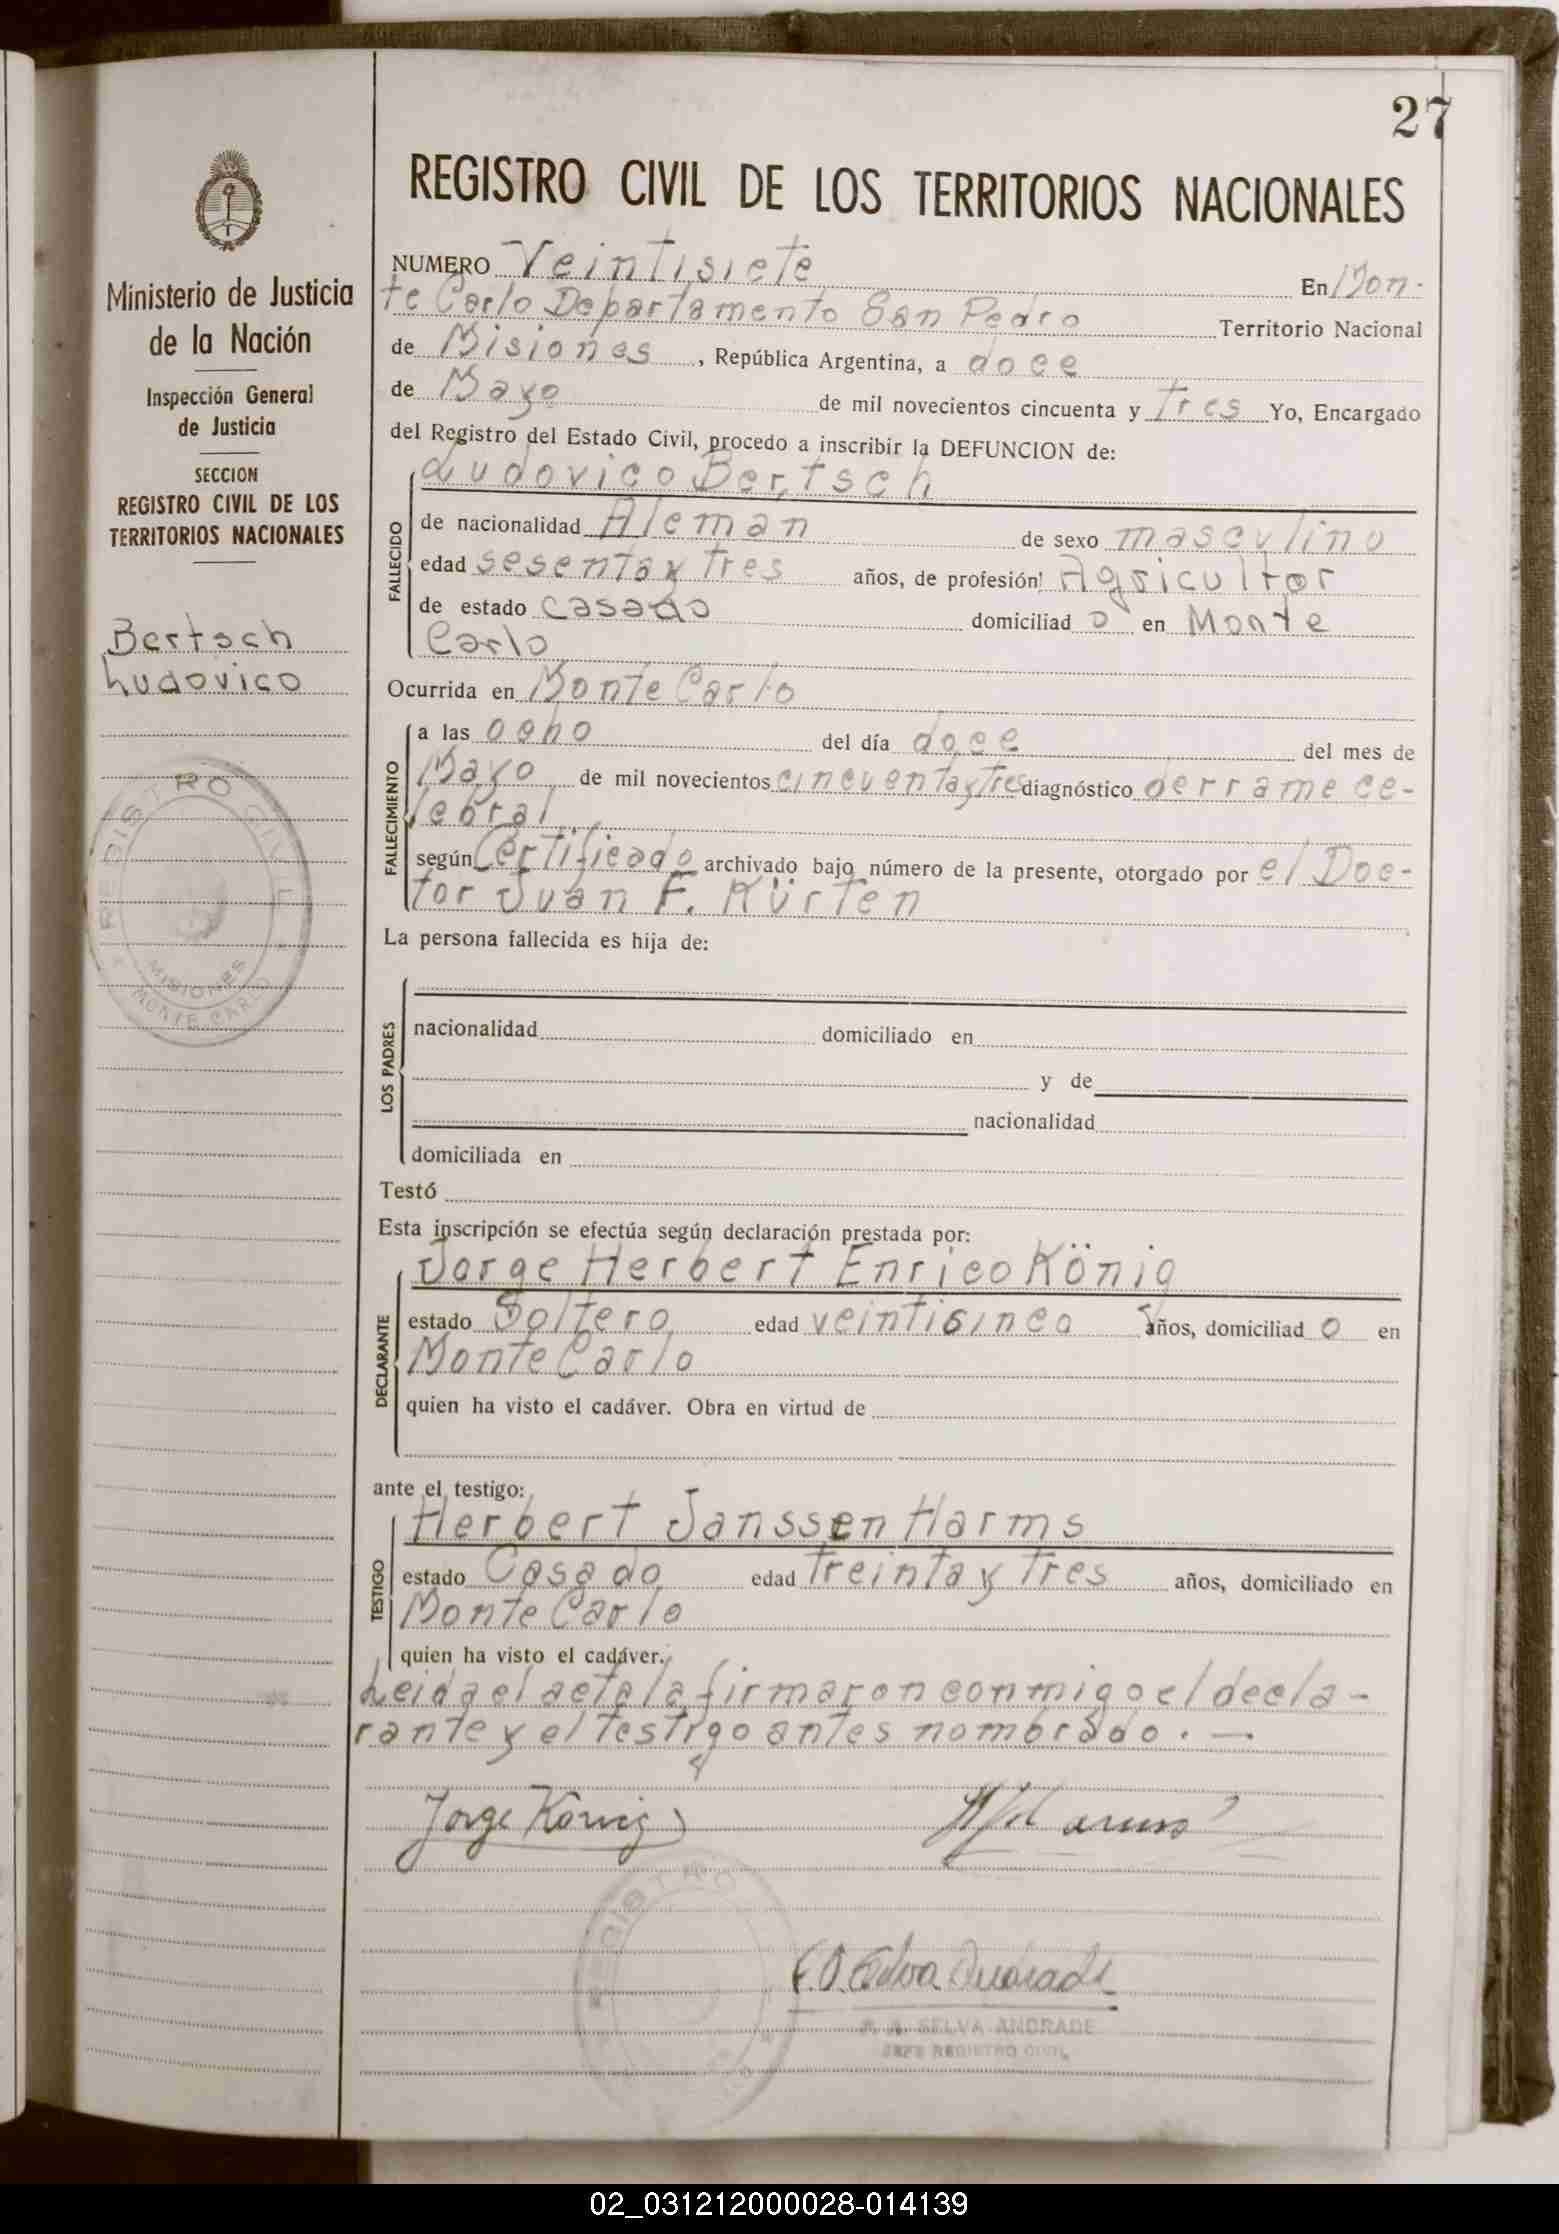 27
REGISTRO CIVIL DE LOS TERRITORIOS NACIONALES
Ministerio de Justicia
de la Nación
Inspección General
de Justicia
SECCION
REGISTRO CIVIL DE LOS
TERRITORIOS NACIONALES
Bertsch
Ludovico
REGISTRO CIVIL
MISIONES
MONTE CARLO
NUMERO Veintisiete En Mon-
te Carlo Departamento San Pedro Territorio Nacional
de Misiones, República Argentina, a doce
de Mayo de mil novecientos cincuenta y tres Yo, Encargado
del Registro del Estado Civil, procedo a inscribir la DEFUNCION de:
Ludovico Bertsch
FALLECIDO
de nacionalidad Aleman de sexo masculino
edad sesenta y tres años, de profesión Agricultor
de estado casado domiciliad o en Monte
Carlo
Ocurrida en Monte Carlo
FALLECIMIENTO
a las ocho del día doce del mes de
Mayo de mil novecientos cincuenta y tres diagnóstico derrame ce-
lebral
según Certificado archivado bajo número de la presente, otorgado por el Doc-
tor Juan F. Kürten
La persona fallecida es hija de:
LOS PADRES
nacionalidad domiciliado en
y de
nacionalidad
domiciliada en
Testó
Esta inscripción se efectúa según declaración prestada por:
Jorge Herbert Enrico König
DECLARANTE
estado Soltero edad veintisinco años, domiciliad o en
Monte Carlo
quien ha visto el cadáver. Obra en virtud de
ante el testigo:
Herbert Janssen Harms
TESTIGO
estado Casado edad treinta y tres años, domiciliado en
Monte Carlo
quien ha visto el cadáver.
Leida el acta la firmaron conmigo el decla-
rante y el testigo antes nombrado. —
Jorge König
REGISTRO
Selva Andrade
F. A. SELVA ANDRADE
JEFE REGISTRO CIVIL
02_031212000028-014139